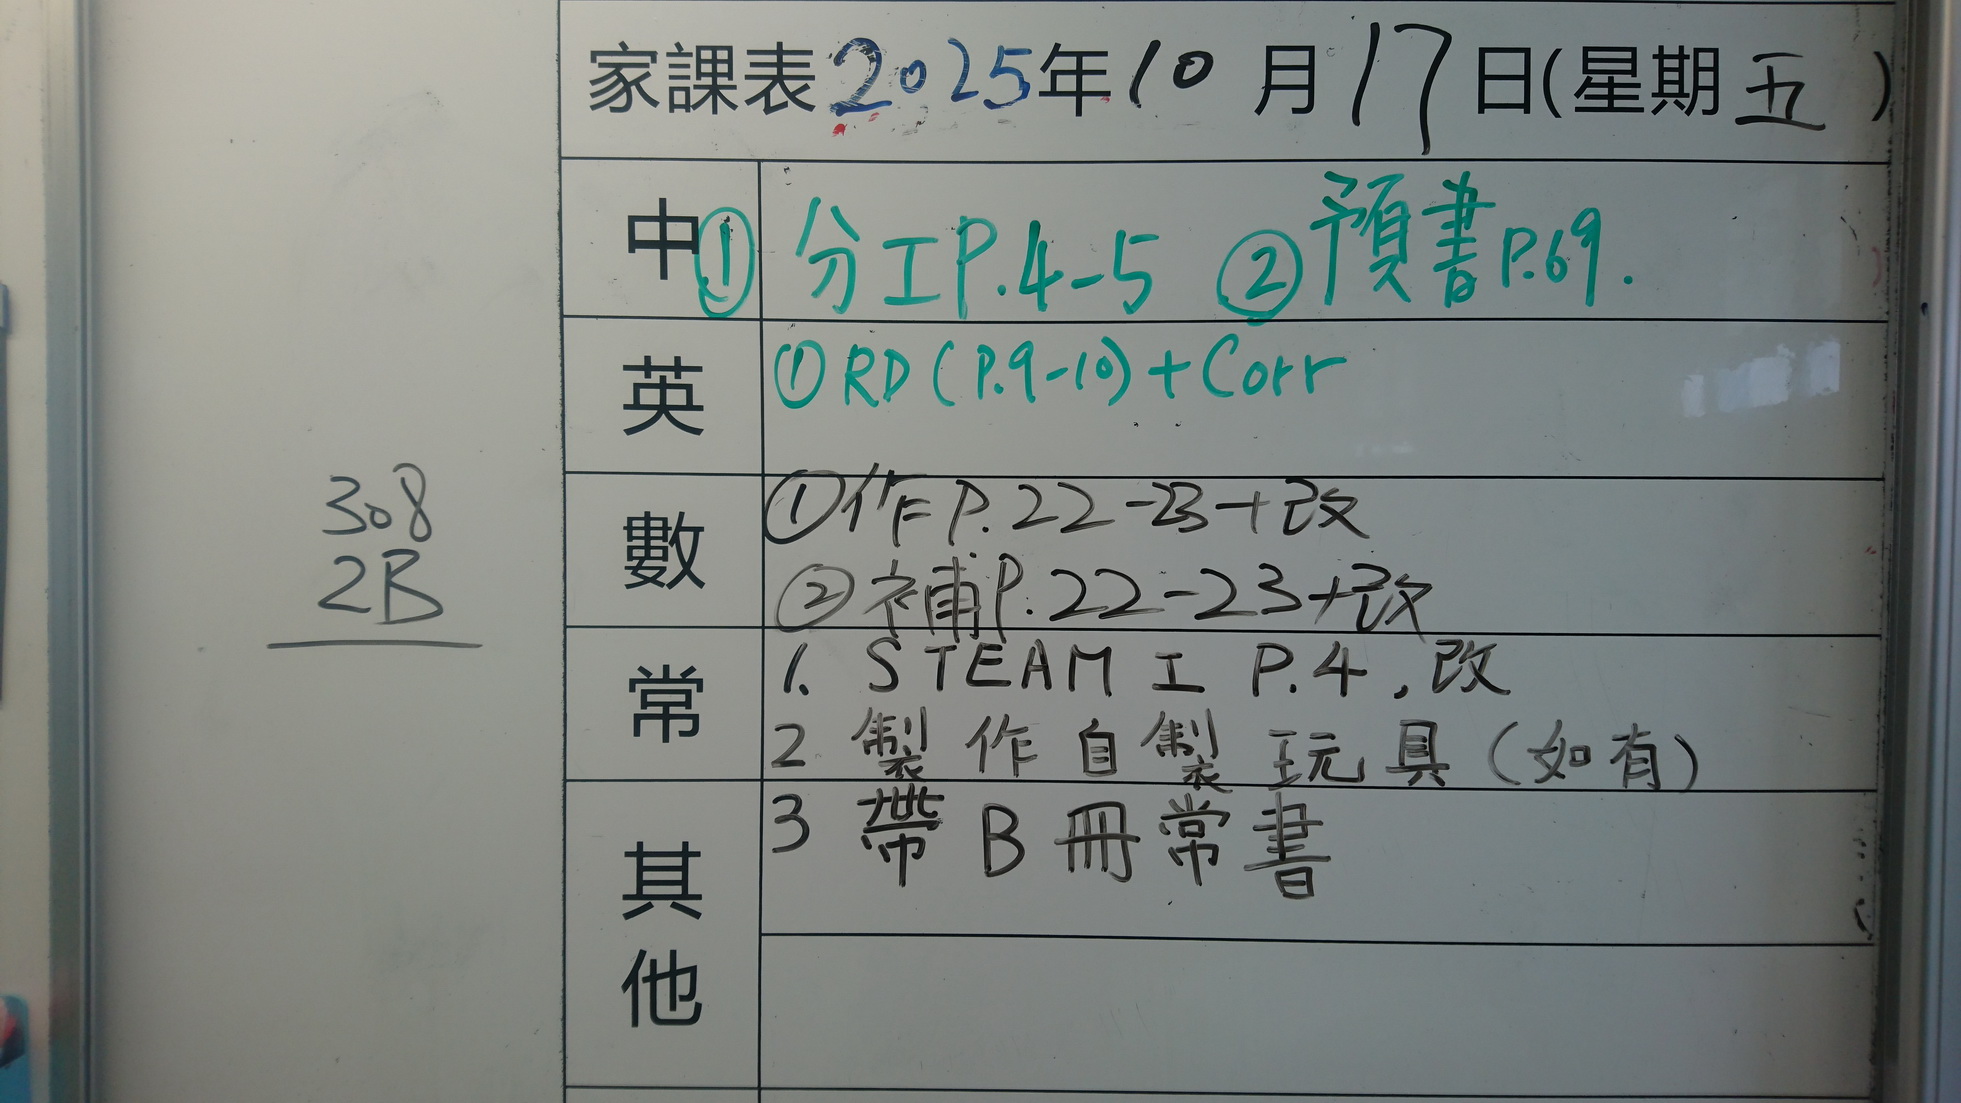 家課表2025年10月17日(星期五)
中 ① 分工P.4-5 ②預書P.69.
英 ①RD(P.9-10)+Corr
308
2B
數 ①作P.22-23+改
②補P.22-23+改
常 1. STEAM工 P.4,改
2 製作自製玩具(如有)
其他 3 帶B冊常書